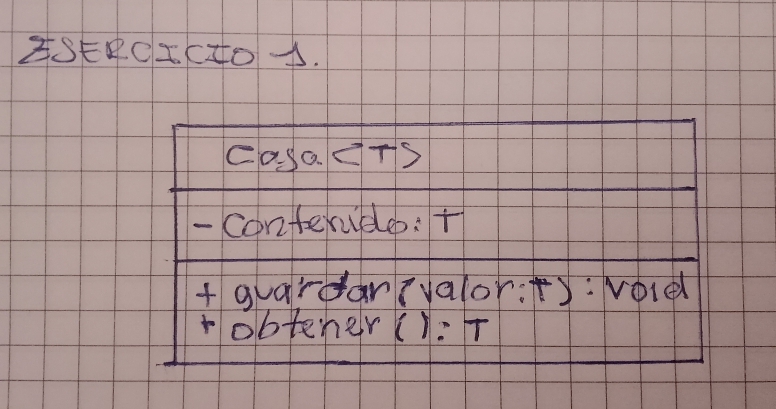 EJERCICIO 1.
Caja<T>
- contenido: T
+ guardar(valor:T): void
+ obtener(): T